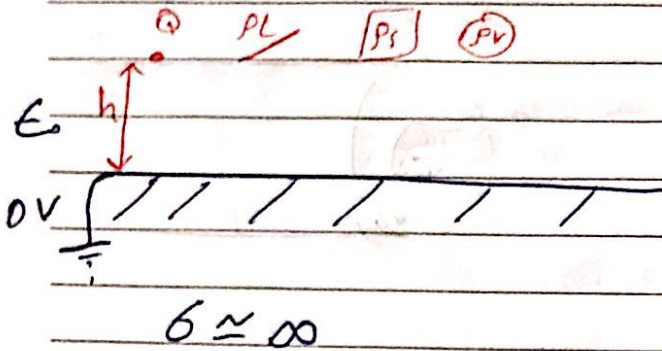 Q ρL ρs ρv
h
ε₀
0V
σ ≃ ∞